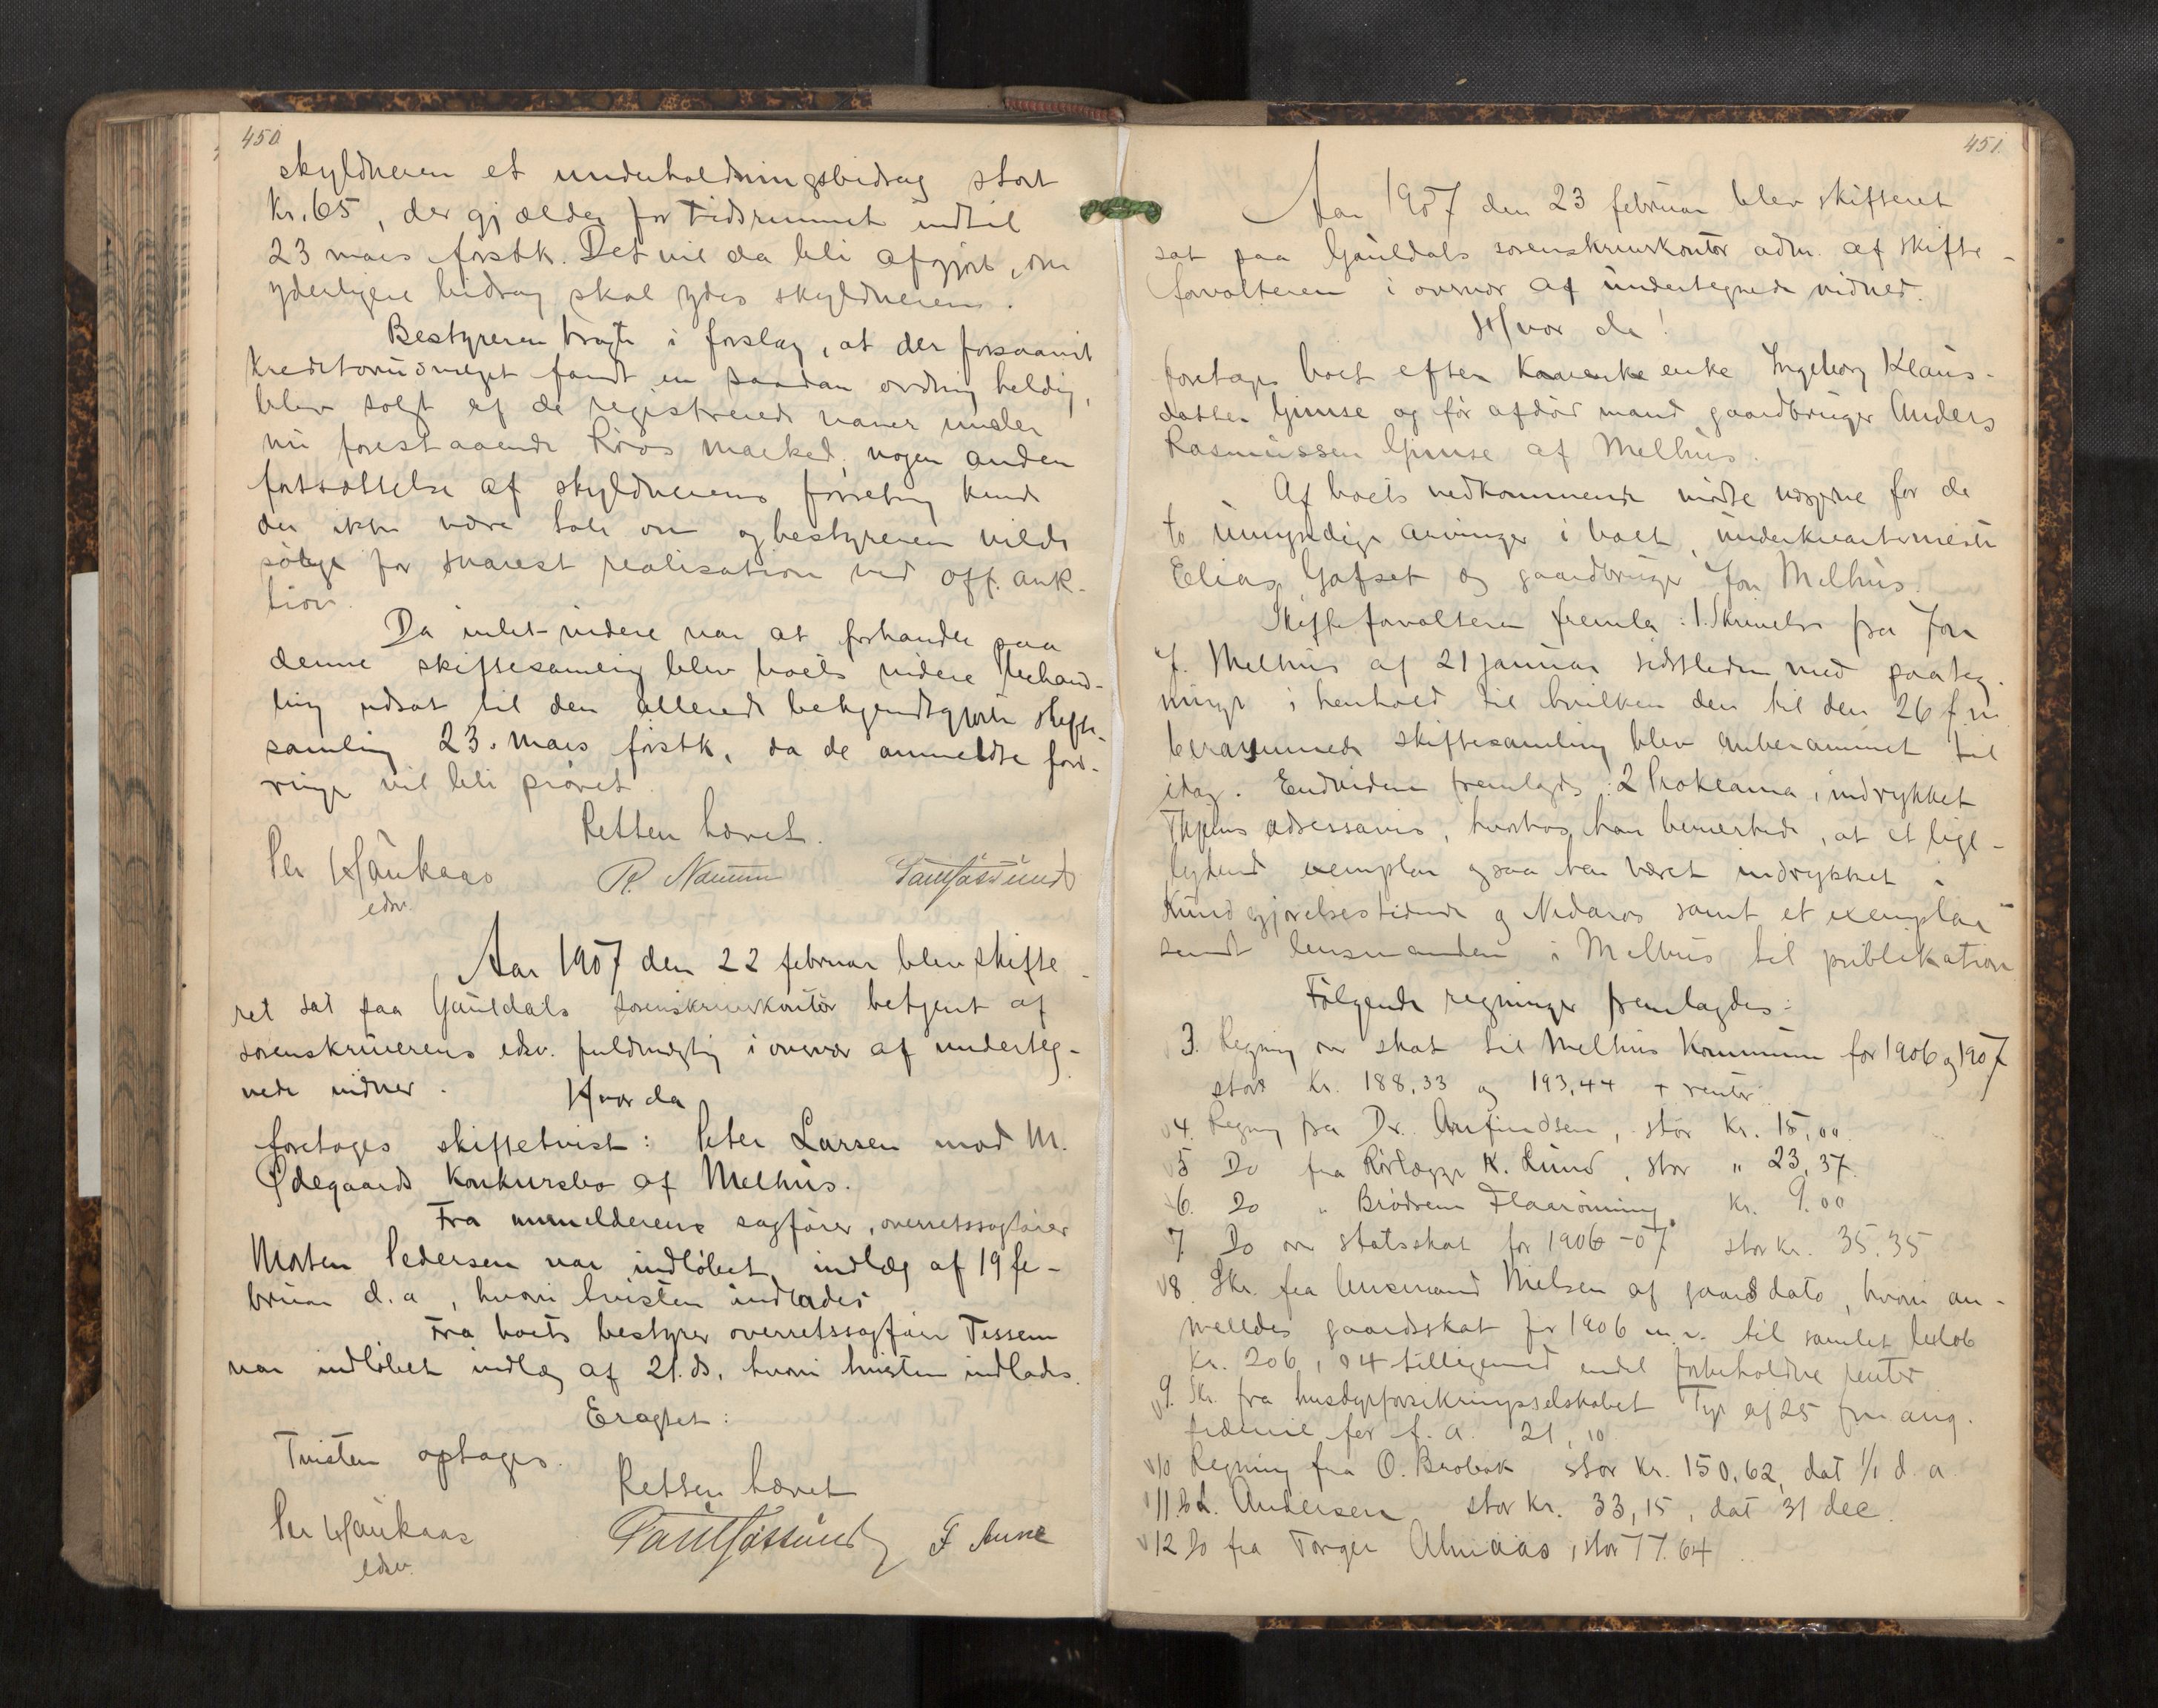 450.
skyldneren et underholdningsbidrag stort
kr. 65, der gjælder for tidsrummet indtil
23 mars førstk. Det vil da bli afgjort, om
yderligere bidrag skal ydes skyldneren.
Bestyreren bragte i forslag, at der forsaavidt
kreditorudvalget fandt en saadan ordning heldig,
blev solgt af de registrerede varer under
nu forestaaende Røros marked; nogen anden
fortsættelse af skyldnerens forretning kunde
der ikke være tale om og bestyreren vilde
sørge for snarest realisation ved off. auk-
tion.
Da intet videre var at forhandle paa
denne skiftesamling blev boets videre behand-
ling udsat til den allerede bekjendtgjorte skifte-
samling 23. mars førstk., da de anmeldte ford-
ringer vil bli prøvet.
Retten hævet.
Per Haukaas
edsv.
Aar 1907 den 22 februar blev skifte-
ret sat paa Gauldals sorenskriverkontor betjent af
sorenskriverens edsv. fuldmægtig i overvær af underteg-
nede vidner.
Hvor da
foretoges skiftetvist: Peter Larsen mod M.
Ødegaards konkursbo af Melhus.
Fra anmelderens sagfører, overretssagfører
Morten Pedersen var indløbet indlæg af 19 fe-
bruar d.a, hvori tvisten indlades
Fra boets bestyrer overretssagfører Tessem
var indløbet indlæg af 21. ds. hvori tvisten indlades.
Eragtet:
Tvisten optages.
Retten hævet
Per Haukaas
edsv.
F Aune
451.
Aar 1907 den 23 februar blev skifteret
sat paa Gauldals sorenskriverkontor adm. af skifte-
forvalteren i overvær af undertegnede vidner.
Hvor da!
foretoges boet efter enke Ingeborg Klaus-
datter Gimse og før afdød mand gaardbruger Anders
Rasmussen Gimse af Melhus.
Af boets vedkommende mødte værgerne for de
to umyndige arvinger i boet, underkvartermester
Elias Gafset og gaardbruger Jon Melhus.
Skifteforvalteren fremla: 1. Skrivelse fra Jon
J. Melhus af 21 januar sidstleden med paateg-
ninger i henhold til hvilken den til den 26 f.m.
berammede skiftesamling blev anberammet til
idag. Endvidere fremlagdes: 2 Proklama, indrykket
Thjems adresseavis, hvorhos han bemerkede, at et lige-
lydende exemplar ogsaa har været indrykket i
Kundgjørelsestidende og Nidaros samt et exemplar
sendt lensmanden i Melhus til publikation
Følgende regninger fremlagdes:
3. Regning over skat til Melhus kommune for 1906 og 1907
stor kr. 188,33 og 193,44 + renter.
4. Regning fra Dr. Arnfindsen, stor kr. 15,00.
5 Do fra Rørlægger K. Lund, stor " 23,37.
6. Do " Brødrene Flaarønning kr. 9.00
7 Do over statsskat for 1906-07 stor kr. 35.35
8. Skr. fra lensmand Nielsen af gaarsdato, hvori an-
meldes gaardsskat for 1906 m.v. til samlet beløb
kr. 206,04 tilligemed endel forbeholdne renter
9. Skr. fra husdyrforsikringsselskabet Tyr af 25 f.m. ang.
præmie for f.a. 21,10
10 Regning fra O. Brobak stor kr. 150,62, dat 1/1 d. a
11 Do L. Andersen stor kr. 33,15, dat 31 dec.
12 Do fra Torger Almaas, stor 77.64